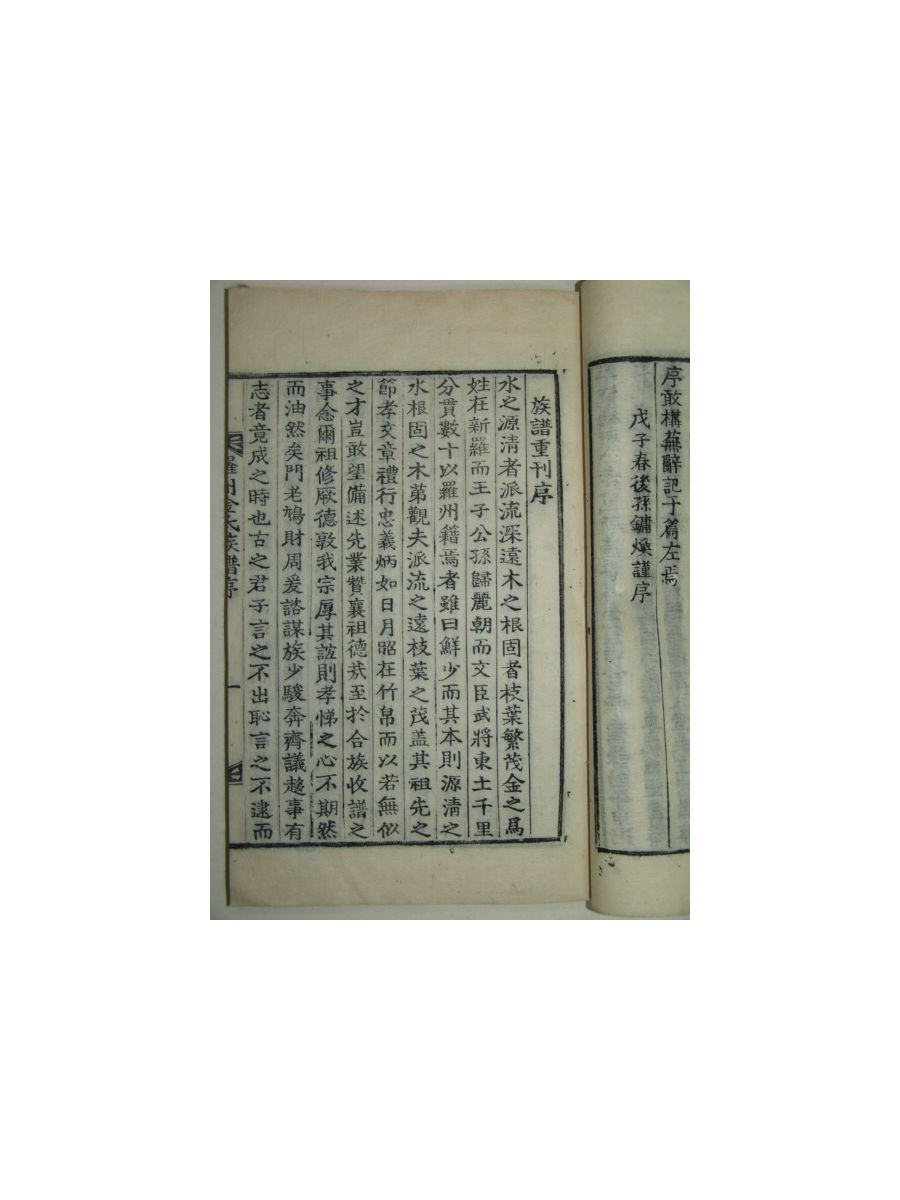 序敢構蕪辭記于篇左焉
戊子春後孫鏞煥謹序
族譜重刊序
水之源淸者派流深遠木之根固者枝葉繁茂金之爲
姓在新羅而王子公孫歸麗朝而文臣武將東土千里
分貫數十以羅州籍焉者雖曰鮮少而其本則源淸之
水根固之木第觀夫派流之遠枝葉之茂盖其祖先之
節孝文章禮行忠義炳如日月昭在竹帛而以若無似
之才豈敢望備述先業贊襄祖德㢤至於合族收譜之
事念爾祖修厥德敦我宗厚其誼則孝悌之心不期然
而油然矣門老鳩財周爰諮謀族少駿奔齊議趍事有
志者竟成之時也古之君子言之不出恥言之不逮而
羅州金氏族譜序
一